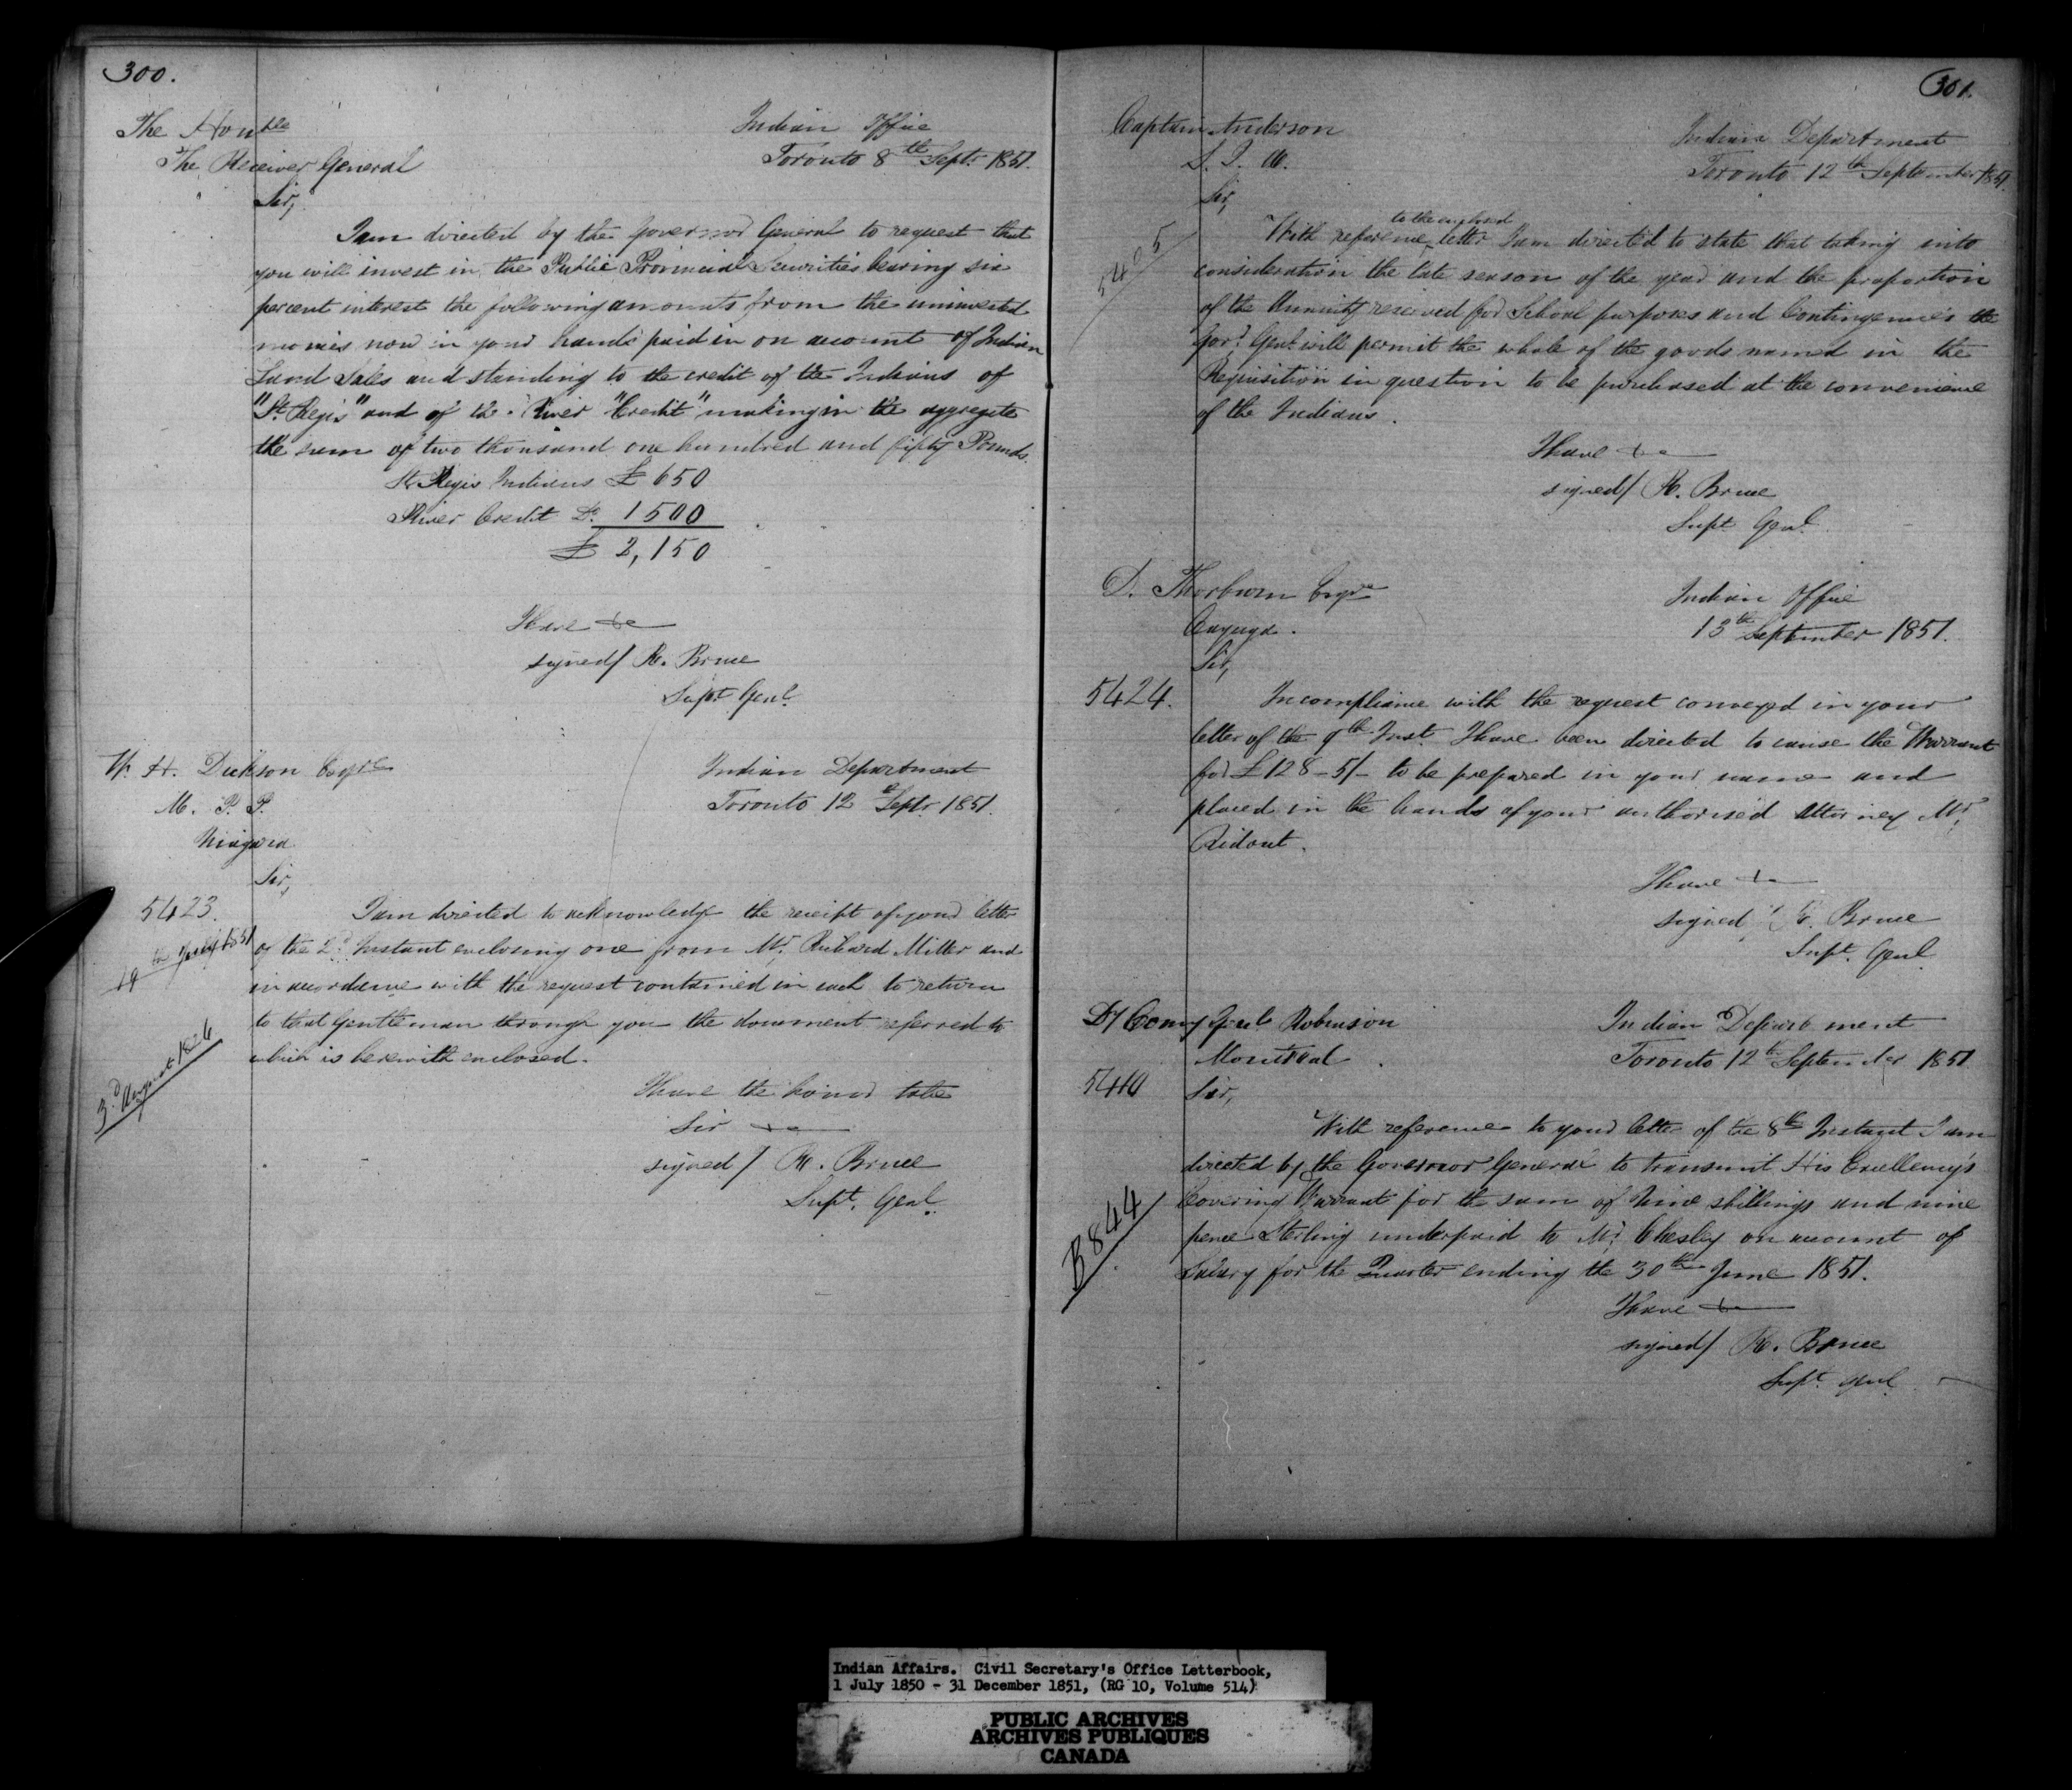 300.
The Honble
The Receiver General
Indian Office
Toronto 8th Septr 1851.
Sir,
I am directed by the Governor General to request that
you will invest in the Public Provincial Securities bearing six
percent interest the following amounts from the uninvested
monies now in your hands paid in on account of Indian
Land Sales and standing to the credit of the Indians of
"St Regis" and of the River "Credit" making in the aggregate
the sum of two thousand one hundred and fifty Pounds.
St Regis Indians £ 650
River Credit Do. 1500
£ 2,150
I have &c
signed/ R. Bruce
Supt Genl.
W. H. Dickson Esqre
M. P. P.
Niagara
Indian Department
Toronto 12th Septr 1851.
Sir,
5423.
19th July 1851
3d August 1826
I am directed to acknowledge the receipt of your letter
of the 2d. Instant enclosing one from Mr. Richard Miller and
in accordance with the request contained in each to return
to that Gentleman through you the document referred to
which is herewith enclosed.
I have the honor to be
Sir &c
signed/ R. Bruce
Supt. Genl.
301.
Captain Anderson
S. I. A.
Indian Department
Toronto 12th September 1851.
Sir,
5405
to the enclosed
With reference letter I am directed to state that taking into
consideration the late season of the year and the proportion
of the Annuity reserved for School purposes and Contingencies the
Govr. Genl. will permit the whole of the goods named in the
Requisition in question to be purchased at the convenience
of the Indians.
I have &c
signed/ R. Bruce
Supt Genl.
D. Thorburn Esqre
Cayuga.
Indian Office
13th September 1851.
Sir,
5424.
In compliance with the request conveyed in your
letter of the 9th Inst. I have been directed to cause the Warrant
for £128-5/- to be prepared in your name and
placed in the hands of your authorised Attorney Mr.
Ridout.
I have &c
signed/ R. Bruce
Supt. Genl.
Dy Comy Genl Robinson
Montreal.
Indian Department
Toronto 12th September 1851
5410
Sir,
With reference to your letter of the 8th Instant I am
directed by the Governor General to transmit His Excellency's
Covering Warrant for the sum of Nine shillings and nine
pence Sterling underpaid to Mr. Chesley on account of
Salary for the Quarter ending the 30th June 1851.
B 844
I have &c
signed/ R. Bruce
Supt. Genl.
Indian Affairs. Civil Secretary's Office Letterbook,
1 July 1850 - 31 December 1851, (RG 10, Volume 514)
PUBLIC ARCHIVES
ARCHIVES PUBLIQUES
CANADA